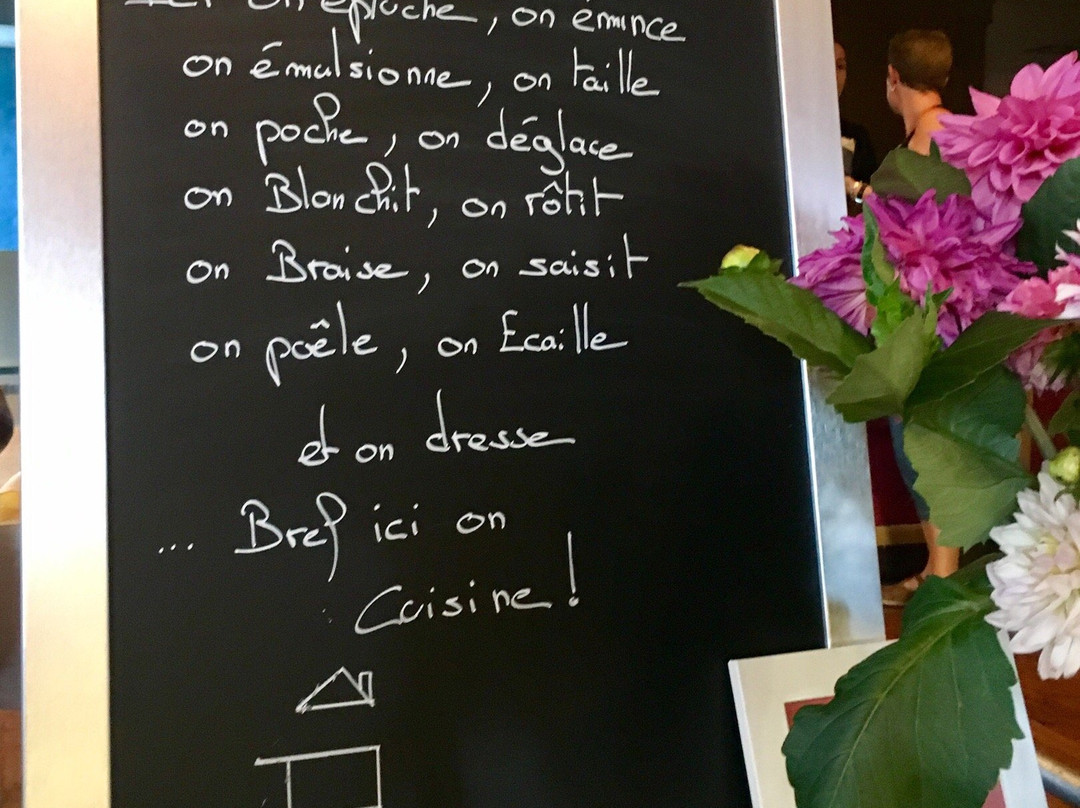 Ici on épluche, on émince
on émulsionne, on taille
on poche, on déglace
on Blanchit, on rôtit
on Braise, on saisit
on poêle, on Ecaille
et on dresse
... Bref ici on
Cuisine !